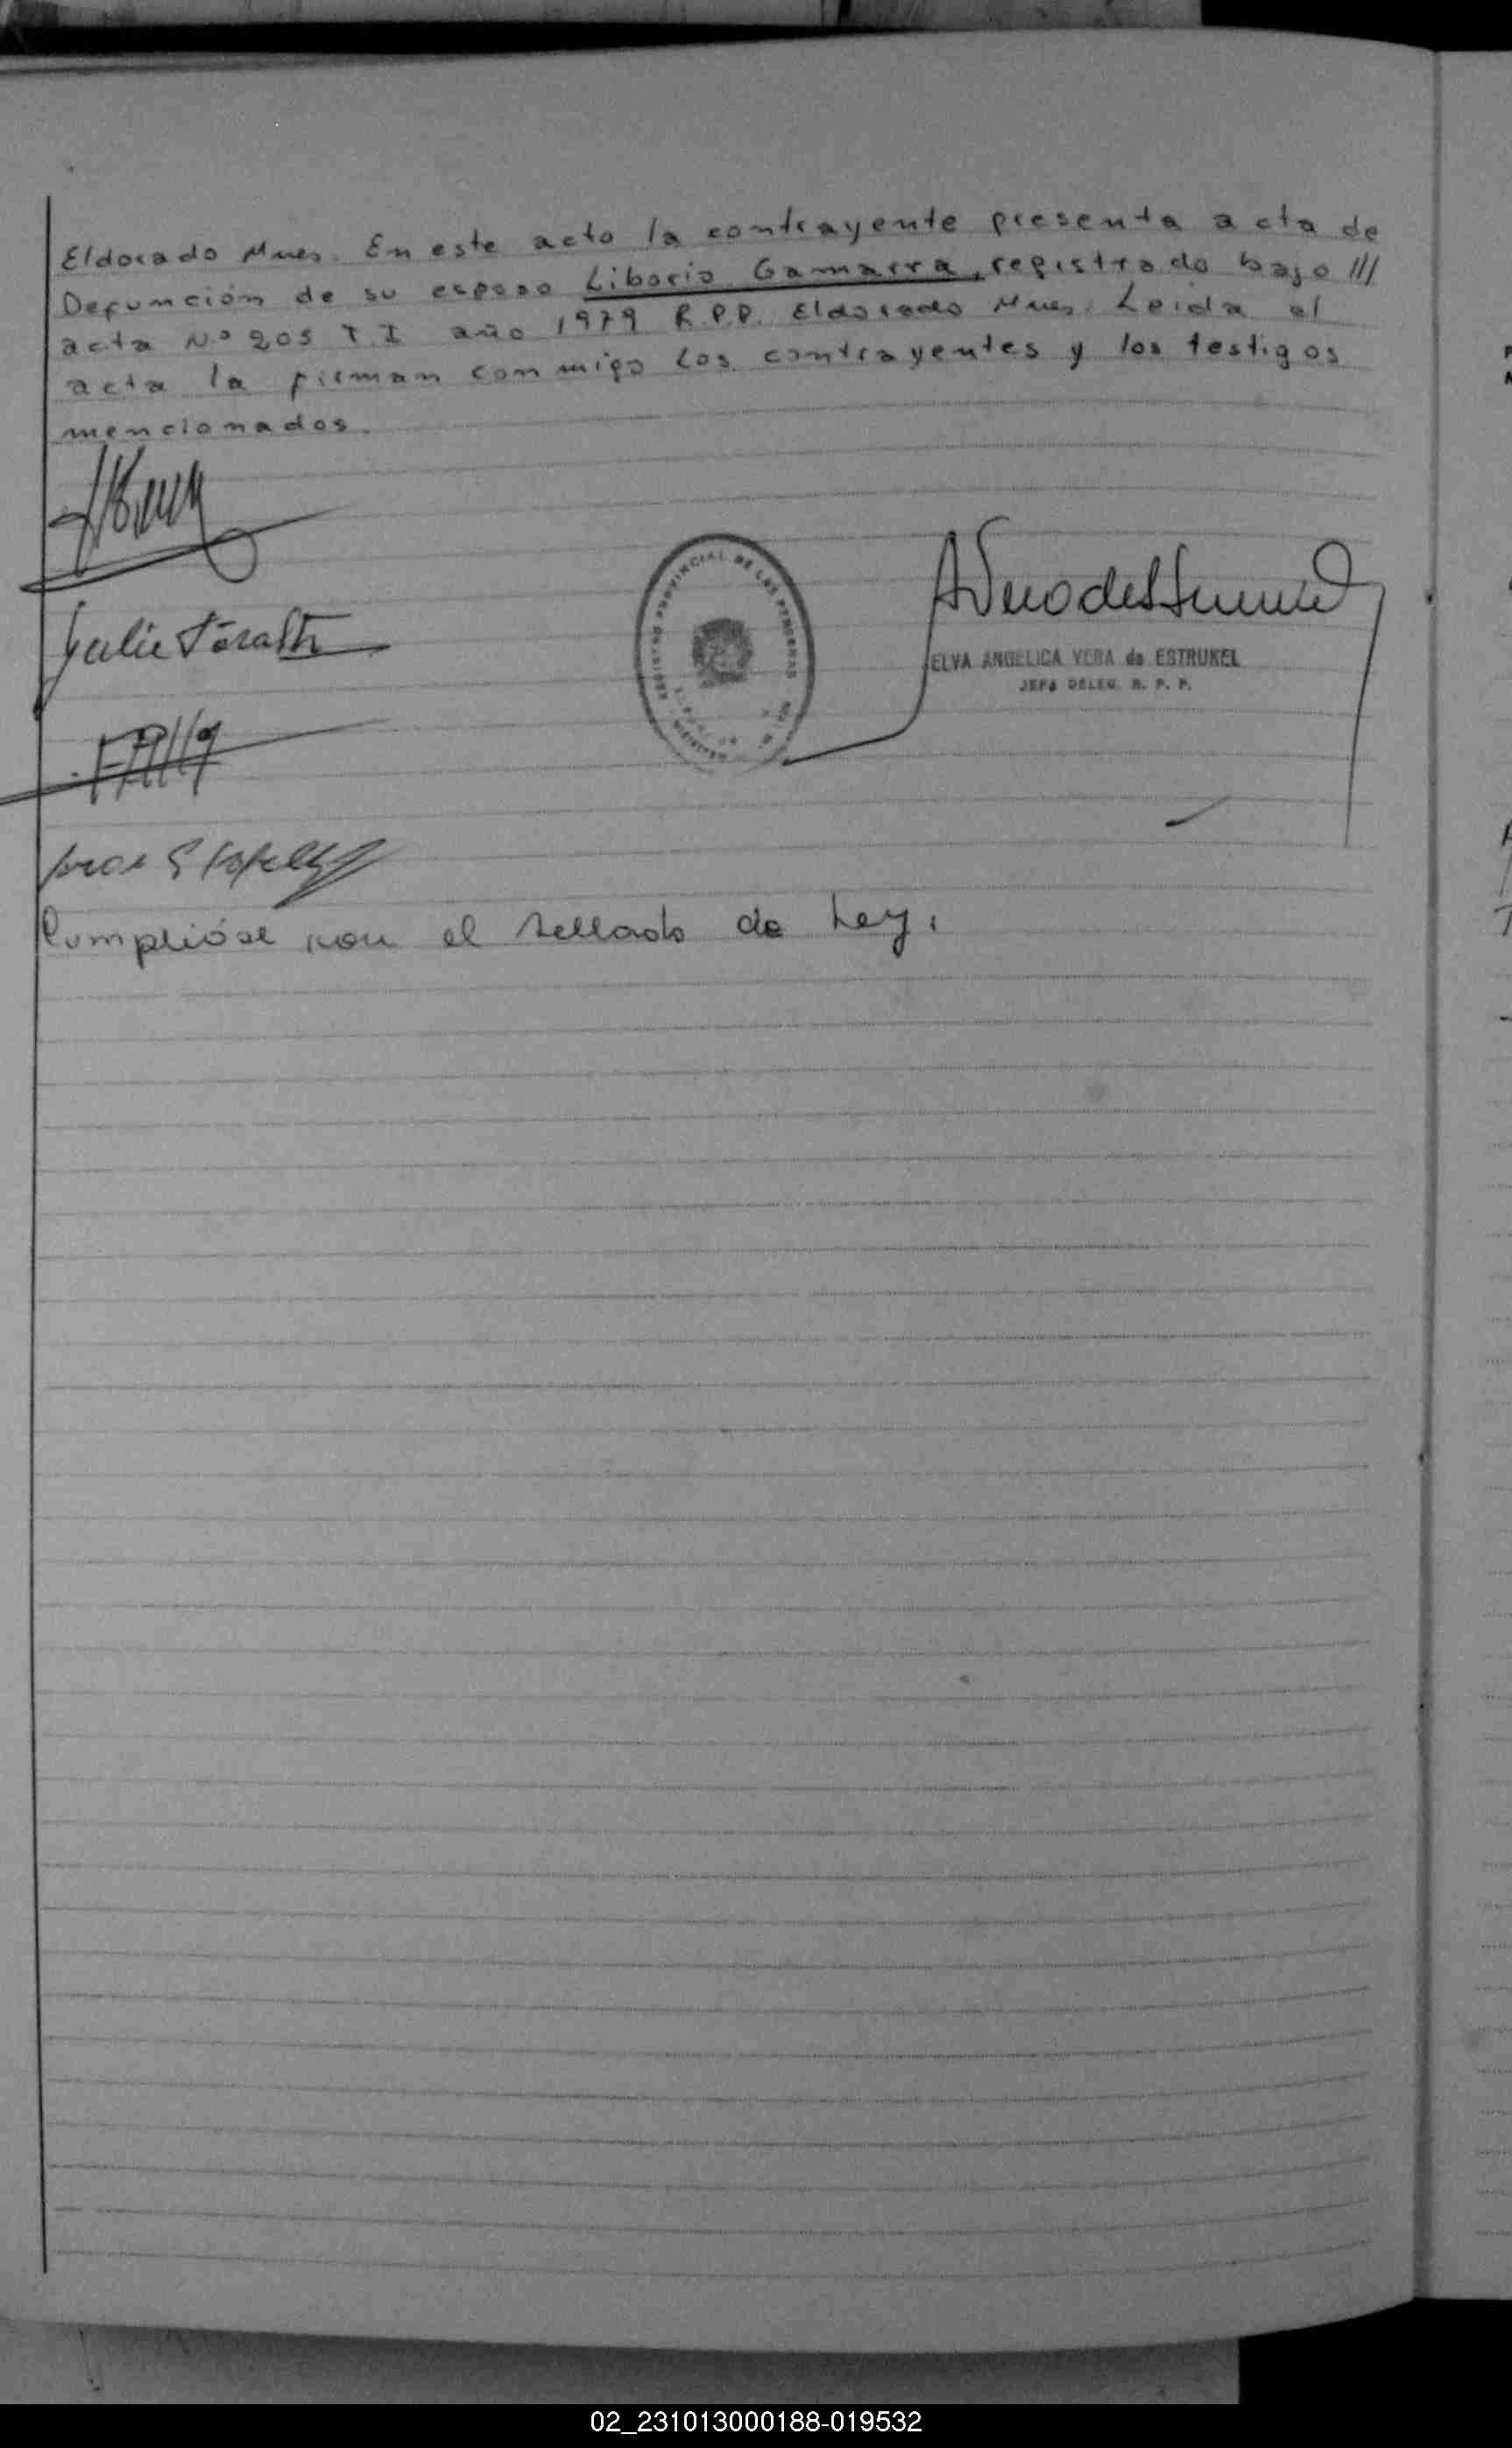 Eldorado Mnes. En este acto la contrayente presenta acta de
Defunción de su esposo Liborio Gamarra, registrado bajo ///
acta N.º 205 T. I año 1979 R.P.P. Eldorado Mnes. Leida el
acta la firman conmigo los contrayentes y los testigos
mencionados.
REGISTRO PROVINCIAL DE LAS PERSONAS
ELVA ANGELICA VERA de ESTRUKEL
JEFA DELEG. R. P. P.
Cumplióse con el sellado de Ley.
02_231013000188-019532